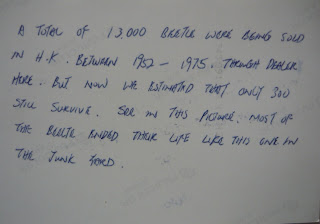 A TOTAL OF 13.000 BEETLE WERE BEING SOLD
IN H.K. BETWEEN 1952 - 1975. THROUGH DEALER
HERE. BUT NOW WE ESTIMATED THAT ONLY 300
STILL SURVIVE. SEE IN THIS PICTURE. MOST OF
THE BEETLE ENDED THEIR LIFE LIKE THIS ONE IN
THE JUNK YARD.